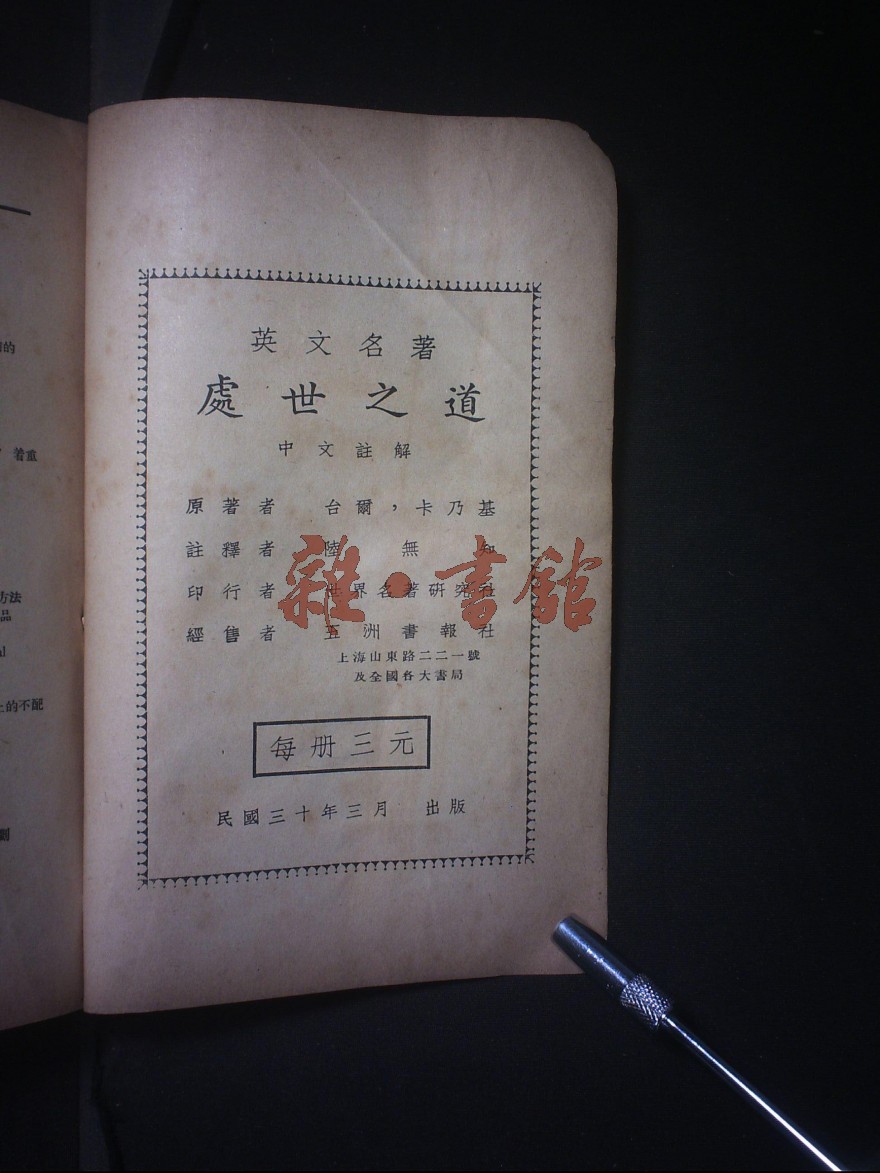 的
着重
方法
品
al
上的不配
劃
英文名著
處世之道
中文註解
原著者 台爾，卡乃基
註釋者 陸無知
印行者 世界名著研究社
經售者 五洲書報社
上海山東路二二一號
及全國各大書局
每册三元
民國三十年三月 出版
雜·書館